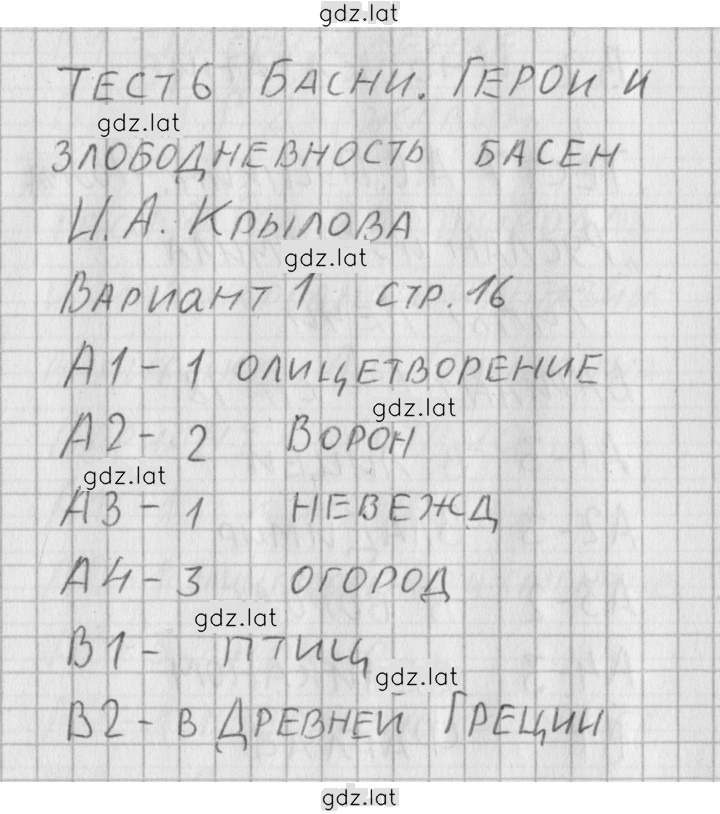 gdz.lat
ТЕСТ 6 БАСНИ. ГЕРОИ И
gdz.lat
ЗЛОБОДНЕВНОСТЬ БАСЕН
И.А. КРЫЛОВА
gdz.lat
ВАРИАНТ 1 СТР. 16
А1 - 1 ОЛИЦЕТВОРЕНИЕ
gdz.lat
А2 - 2 ВОРОН
gdz.lat
А3 - 1 НЕВЕЖД
А4 - 3 ОГОРОД
gdz.lat
В1 - ПТИЦ
gdz.lat
В2 - В ДРЕВНЕЙ ГРЕЦИИ
gdz.lat